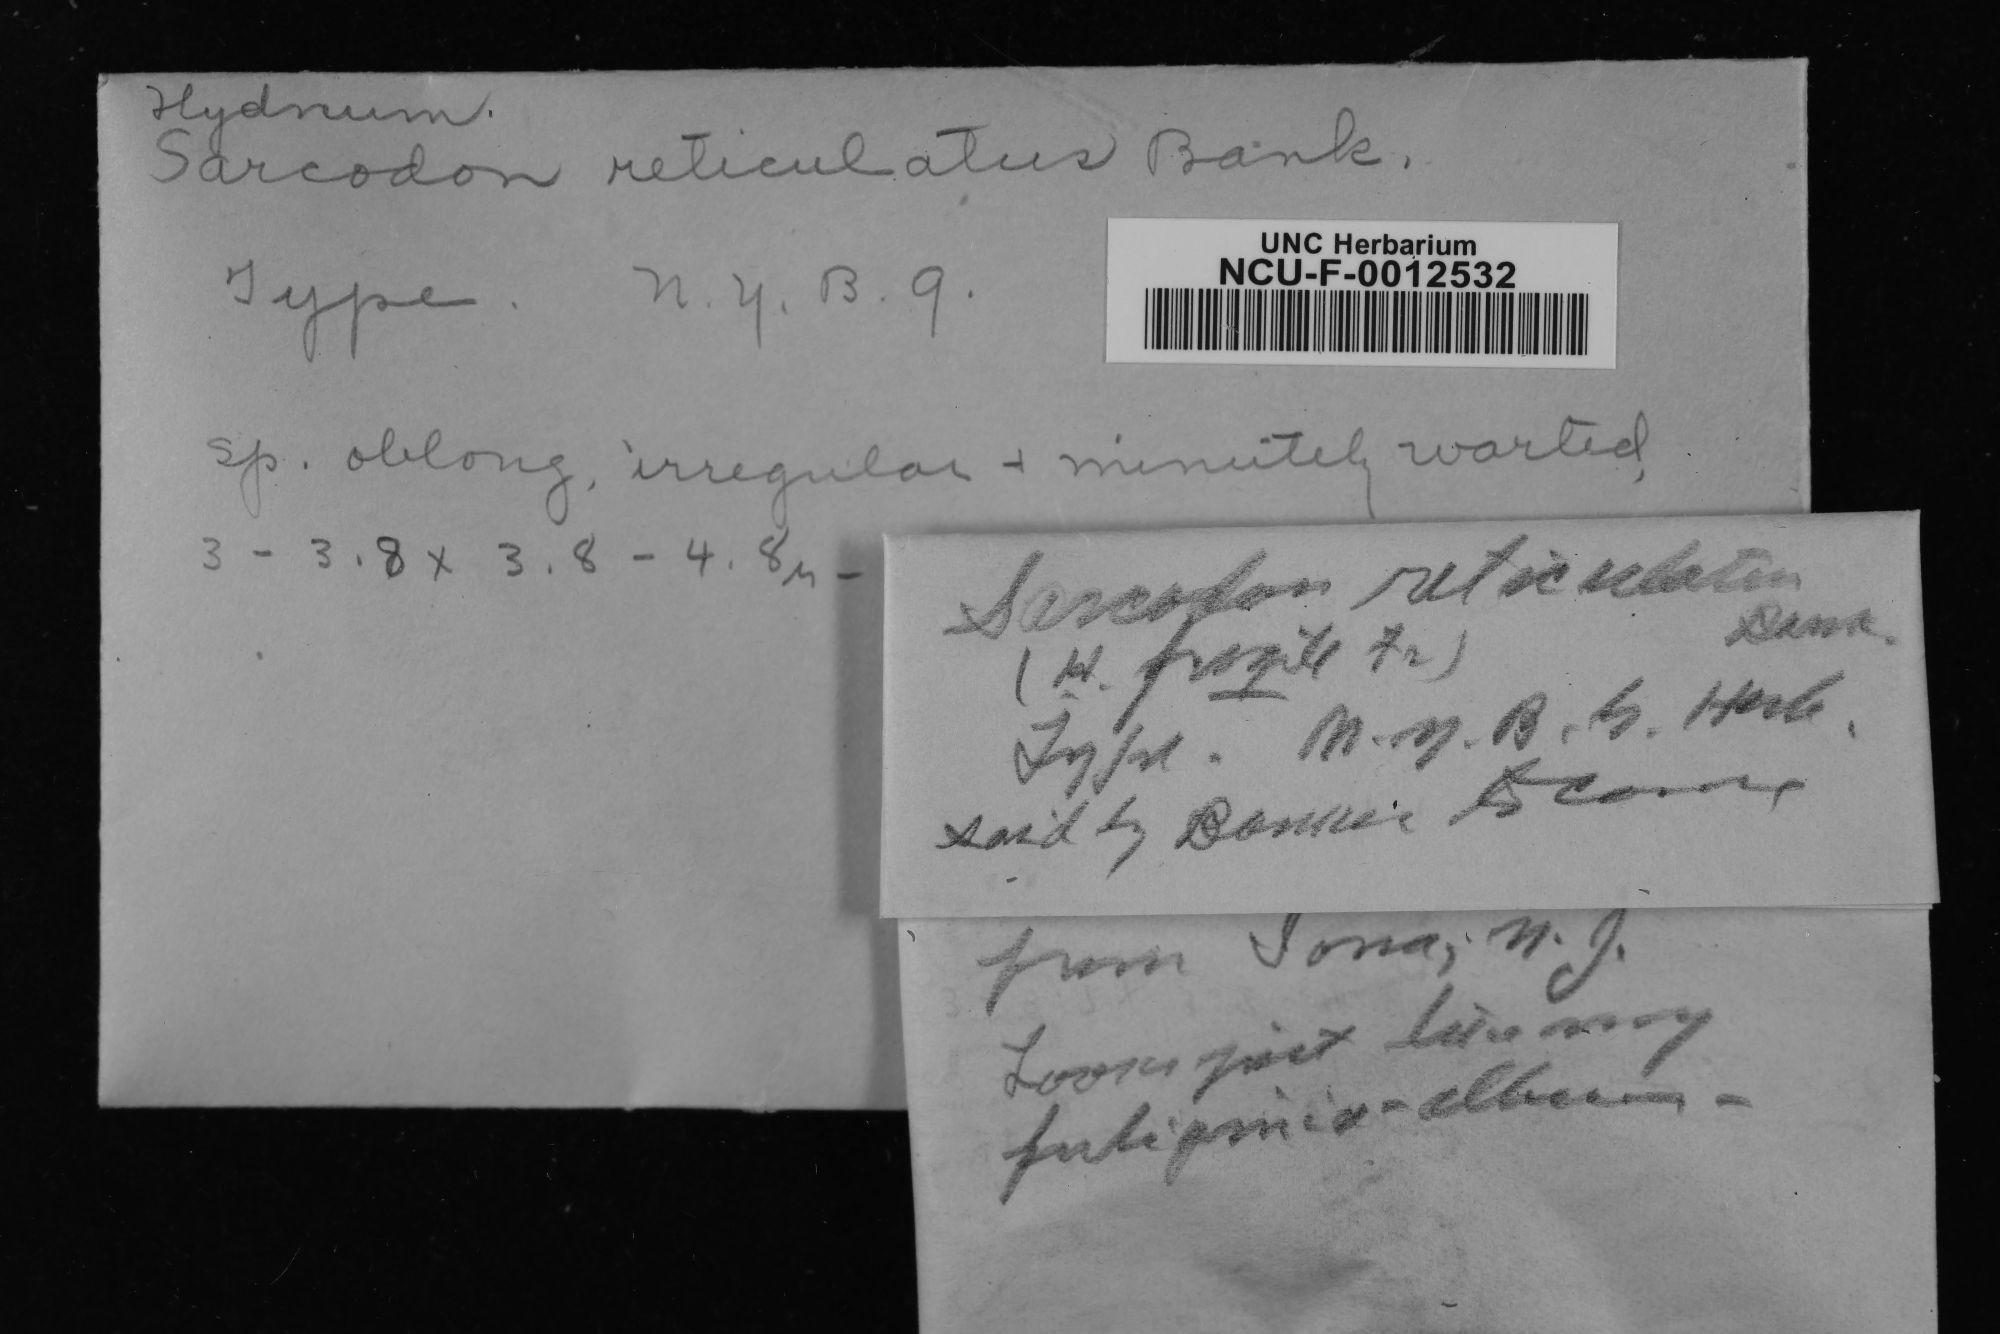 Hydnum.
Sarcodon reticulatus Bank.
Type. N.Y.B.G.
UNC Herbarium
NCU-F-0012532
sp. oblong, irregular + minutely warted,
3 - 3.8 x 3.8 - 4.8µ -
Sarcodon reticulatus
Bank.
(H. fragile Fr)
Type. N.Y.B.G. Herb.
said by Banker to come
from Iona, N.J.
Looks just like my
fuligineo-album -